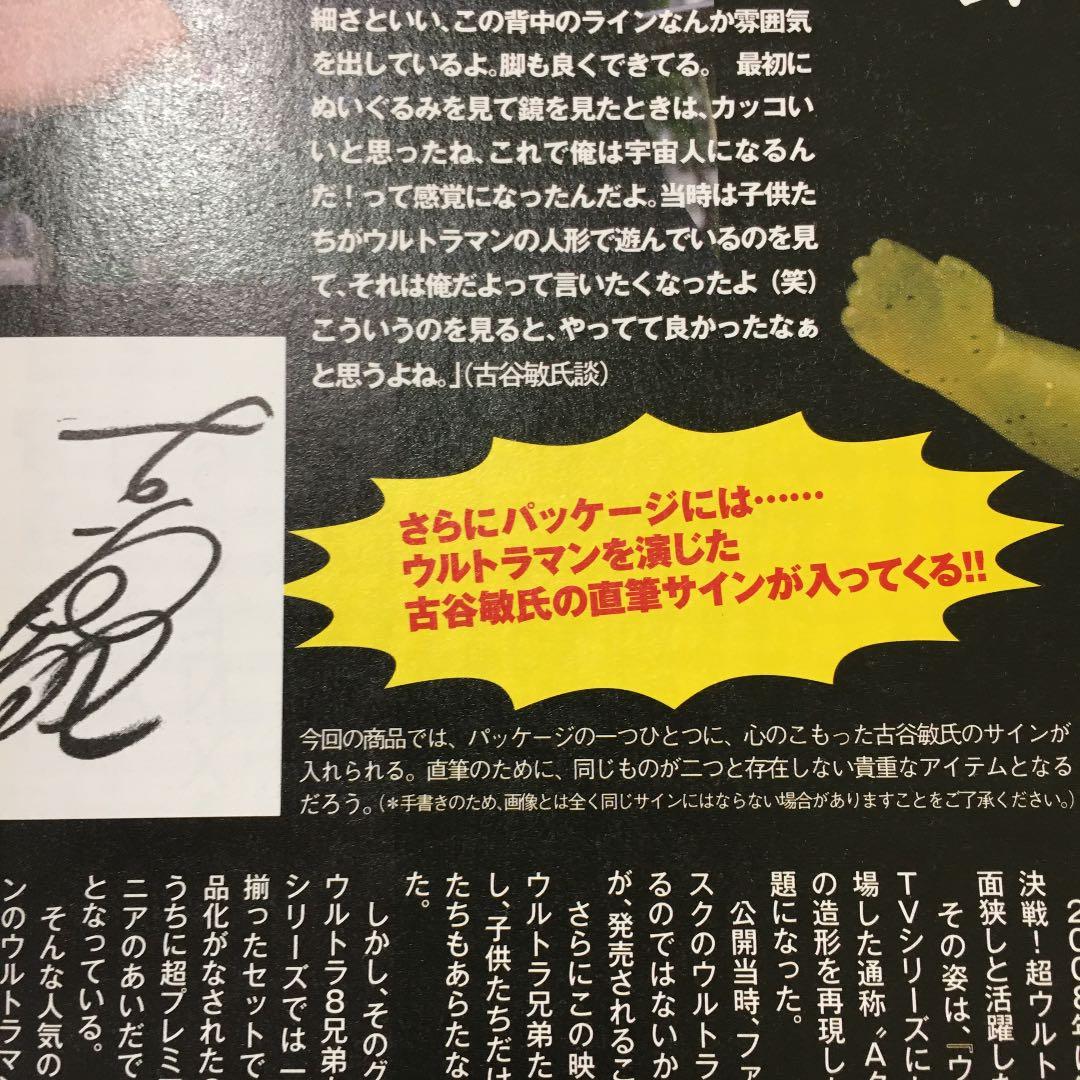 細さといい、この背中のラインなんか雰囲気
を出しているよ。脚も良くできてる。 最初に
ぬいぐるみを見て鏡を見たときは、カッコい
いと思ったね、これで俺は宇宙人になるん
だ！って感覚になったんだよ。当時は子供た
ちがウルトラマンの人形で遊んでいるのを見
て、それは俺だよって言いたくなったよ（笑）
こういうのを見ると、やってて良かったなぁ
と思うよね。」（古谷敏氏談）
さらにパッケージには……
ウルトラマンを演じた
古谷敏氏の直筆サインが入ってくる!!
今回の商品では、パッケージの一つひとつに、心のこもった古谷敏氏のサインが
入れられる。直筆のために、同じものが二つと存在しない貴重なアイテムとなる
だろう。（＊手書きのため、画像とは全く同じサインにはならない場合がありますことをご了承ください。）
2008年
決戦！超ウルト
面狭しと活躍し
その姿は、『ウ
TVシリーズに
場した通称〝Aタ
の造形を再現し
題になった。
公開当時、ファ
スクのウルトラ
るのではないか
が、発売されるこ
さらにこの映
ウルトラ兄弟た
し、子供たちだけ
たちもあらたな
た。
しかし、そのグ
ウルトラ8兄弟
シリーズでは一
揃ったセットで
品化がなされた
うちに超プレミ
ニアのあいだで
となっている。
そんな人気の
ンのウルトラマ